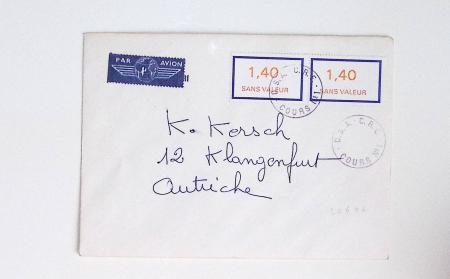 PAR AVION
1,40
SANS VALEUR
1,40
SANS VALEUR
COURS
K. Kersch
12 Klangenfurt
Autriche
COURS